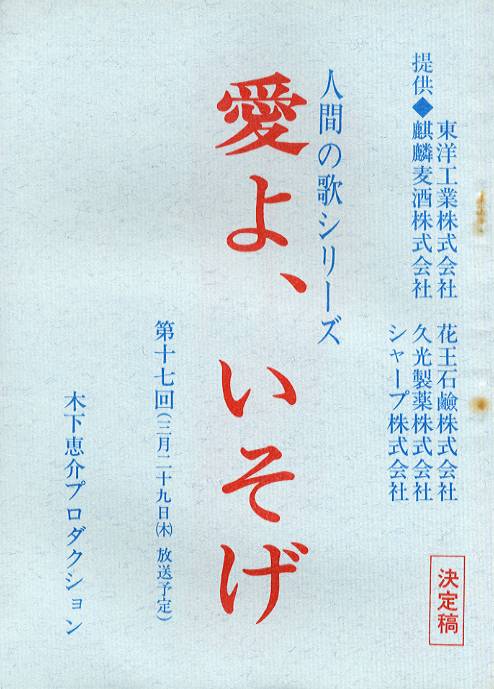 提供◆
東洋工業株式会社
麒麟麦酒株式会社
花王石鹸株式会社
久光製薬株式会社
シャープ株式会社
人間の歌シリーズ
愛よ、いそげ
第十七回(三月二十九日㈭ 放送予定)
木下恵介プロダクション
決定稿